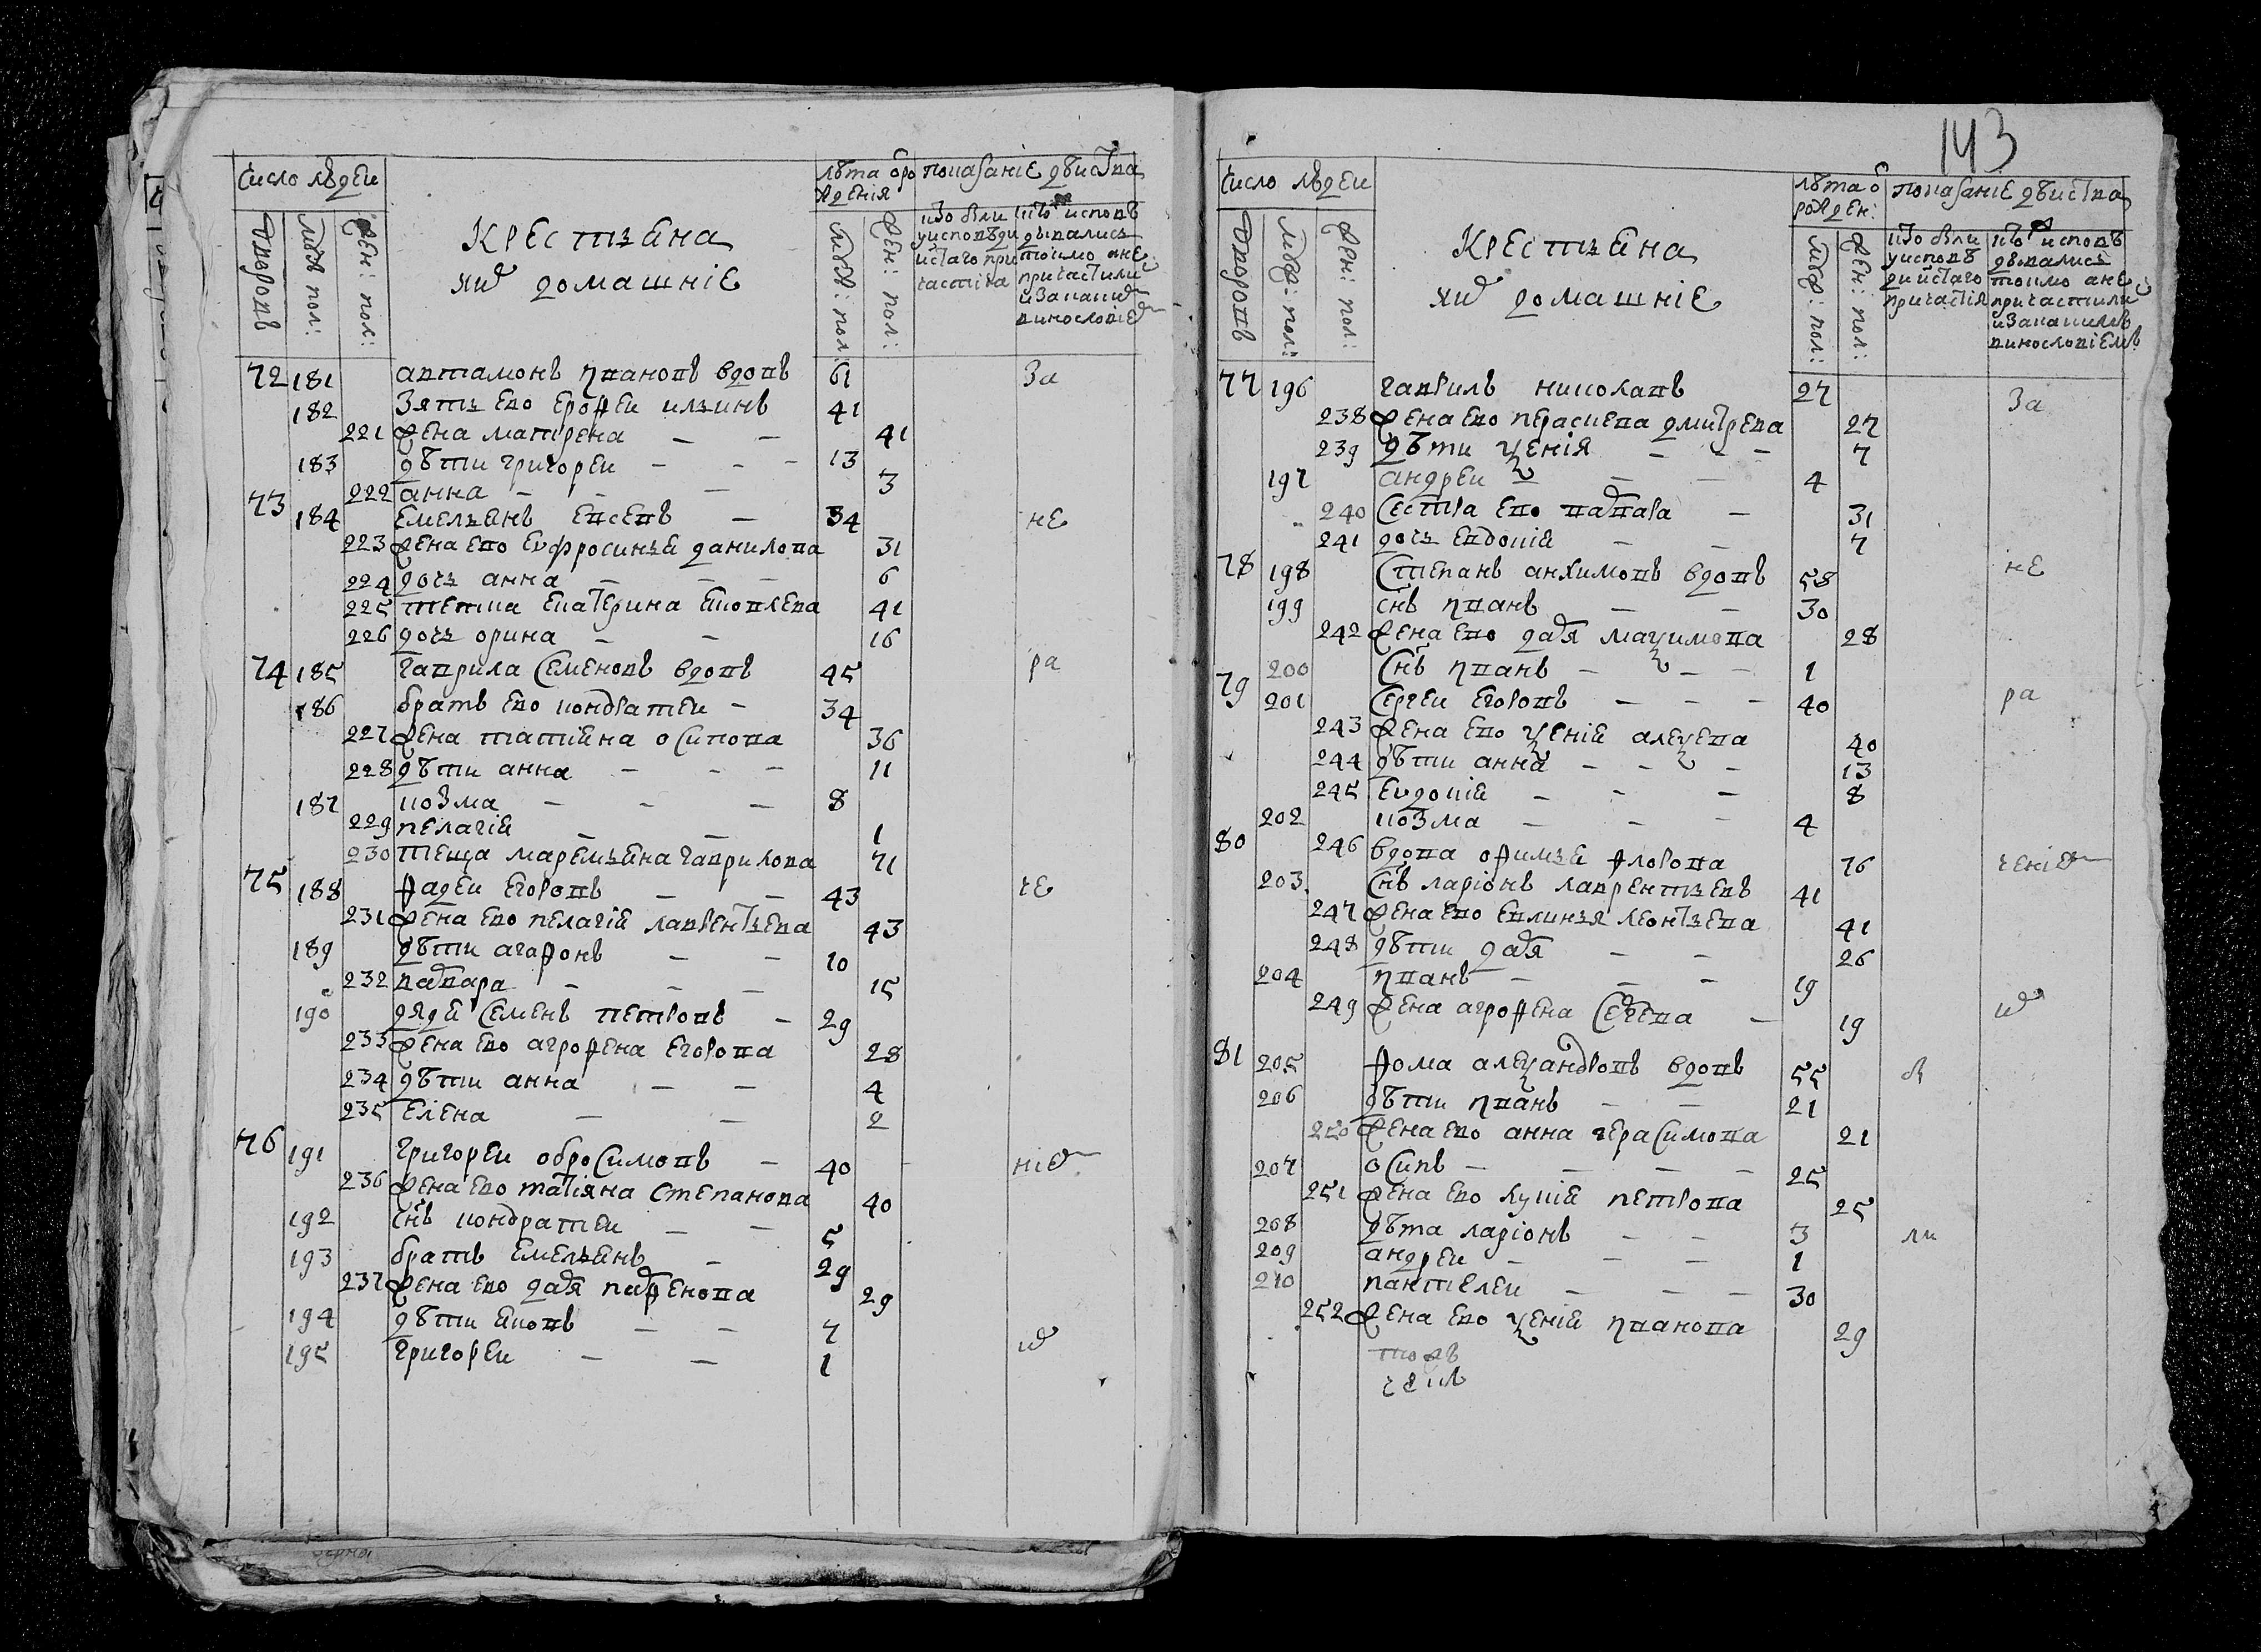 число людеи
дворовъ
муж пол:
жен: пол:
крестьяна
их домашние
лѣта от ро
ждения
муж: пол:
жен: пол:
показание действа
кто были
у исповѣди
и стаго при
частия
кто исповѣ
дывались
токмо а не
причастили
и за каким
винословие
72 181 автамонъ иванов вдовъ 61 за
182 зять ево ерофеи ильинъ 41
221 жена матрена — — 41
183 дѣти григореи — — — 13
222 анна — — — 3
73 184 емельянъ евсевъ — 34 не
223 жена ево еуфросинья данилова 31
224 дочь анна — — — 6
225 тетка екатерина яковлева 41
226 дочь орина — — 16
74 185 гаврила семеновъ вдовъ 45 ра
186 братъ ево кондратеи — 34
227 жена татияна осипова 36
228 дѣти анна — — — 11
187 козма — — — 8
229 пелагия — — 1
230 теща маремьяна гаврилова 71
75 188 фадеи егоровъ — — 43 че
231 жена ево пелагия лаврентьева 43
189 дѣти агафонъ — — 10
232 варвара — — — 15
190 дядя семенъ петровъ — 29
233 жена ево агрофена егорова 28
234 дѣти анна — — 4
235 елена — — 2
76 191 григореи обросимовъ — 40 ние
236 жена ево татияна степанова 40
192 снъ кондратеи — — 5
193 братъ емельянъ — 29
237 жена ево дарья парфенова 29
194 дѣти яковъ — — 7 их
195 григореи — — 1
143
число людеи
дворовъ
муж: пол:
жен: пол:
крестьяна
их домашние
лѣта от
рожден:
муж: пол:
жен: пол:
показание действа
кто были
у исповѣ
ди и стаго
причастия
кто исповѣ
дывались
токмо а не
причастили
и за какимъ
винословиемъ
77 196 гаврилъ николавъ 27 за
238 жена ево параскева дмитрева 27
239 дѣти ксения — — — 7
197 андреи — — — 4
240 сестра ево варвара — 31
241 дочь евдокия — — 7
78 198 степанъ анкимовъ вдовъ 58 не
199 снъ иванъ — — 30
242 жена ево дарья максимова 28
200 снъ иванъ — — — 1
79 201 сергеи егоровъ — — — 40 ра
243 жена ево ксения алексева 40
244 дѣти анна — — — 13
245 евдокия — — — 8
202 козма — — — 4
80 246 вдова офимья флорова 76 чение
203 снъ ларионъ лаврентьевъ 41
247 жена ево евлинья леонтьева 41
248 дѣти дарья — — 26
204 иванъ — — — 19
249 жена агрофена сергева — 19 их
81 205 фома александровъ вдовъ 55 бы
206 дѣти иванъ — — 21
250 жена ево анна герасимова 21
207 осипъ — — — — 25
251 жена ево лукия петрова 25
208 дѣти ларионъ — — 3 ли
209 андреи — — — 1
210 пантелеи — — — 30
252 жена ево ксения иванова 29